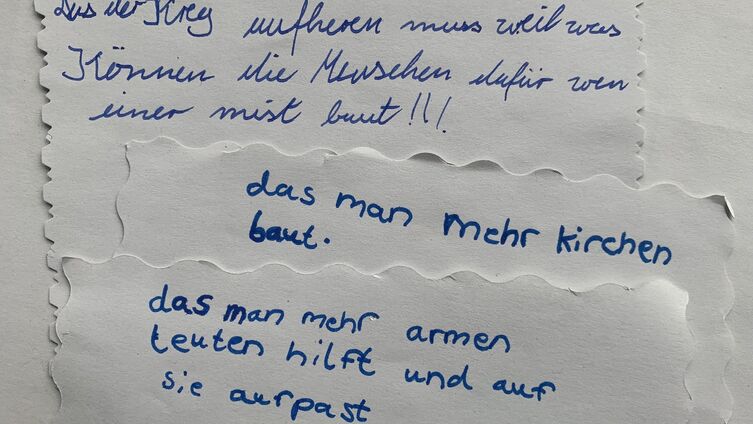 Das der Krieg aufheren muss weil was
Können die Menschen dafür wen
einer mist baut!!!
das man mehr kirchen
baut.
das man mehr armen
leuten hilft und auf
sie aurpast